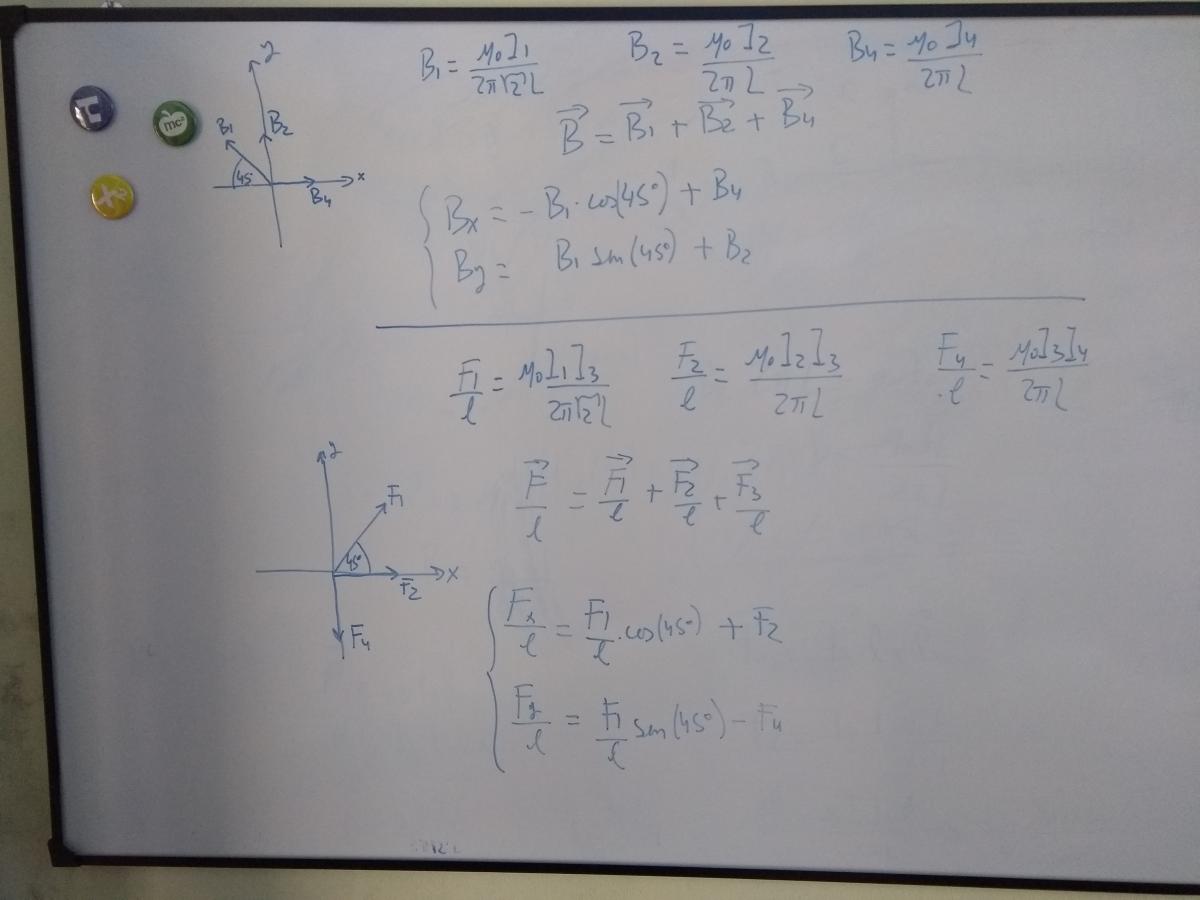 B₁ = μ₀I₁/2π√2L   B₂ = μ₀I₂/2πL   B₄ = μ₀I₄/2πL
B⃗ = B⃗₁ + B⃗₂ + B⃗₄
y
B₁ B₂
mc²
45° B₄ x
Bx = - B₁·cos(45°) + B₄
By = B₁ sen(45°) + B₂
F₁/l = μ₀I₁I₃/2π√2L   F₂/l = μ₀I₂I₃/2πL   F₄/l = μ₀I₃I₄/2πL
y
F₁
45° F₂ x
F₄
F⃗/l = F⃗₁/l + F⃗₂/l + F⃗₃/l
Fx/l = F₁/l·cos(45°) + F₂
Fy/l = F₁/l sen(45°) - F₄